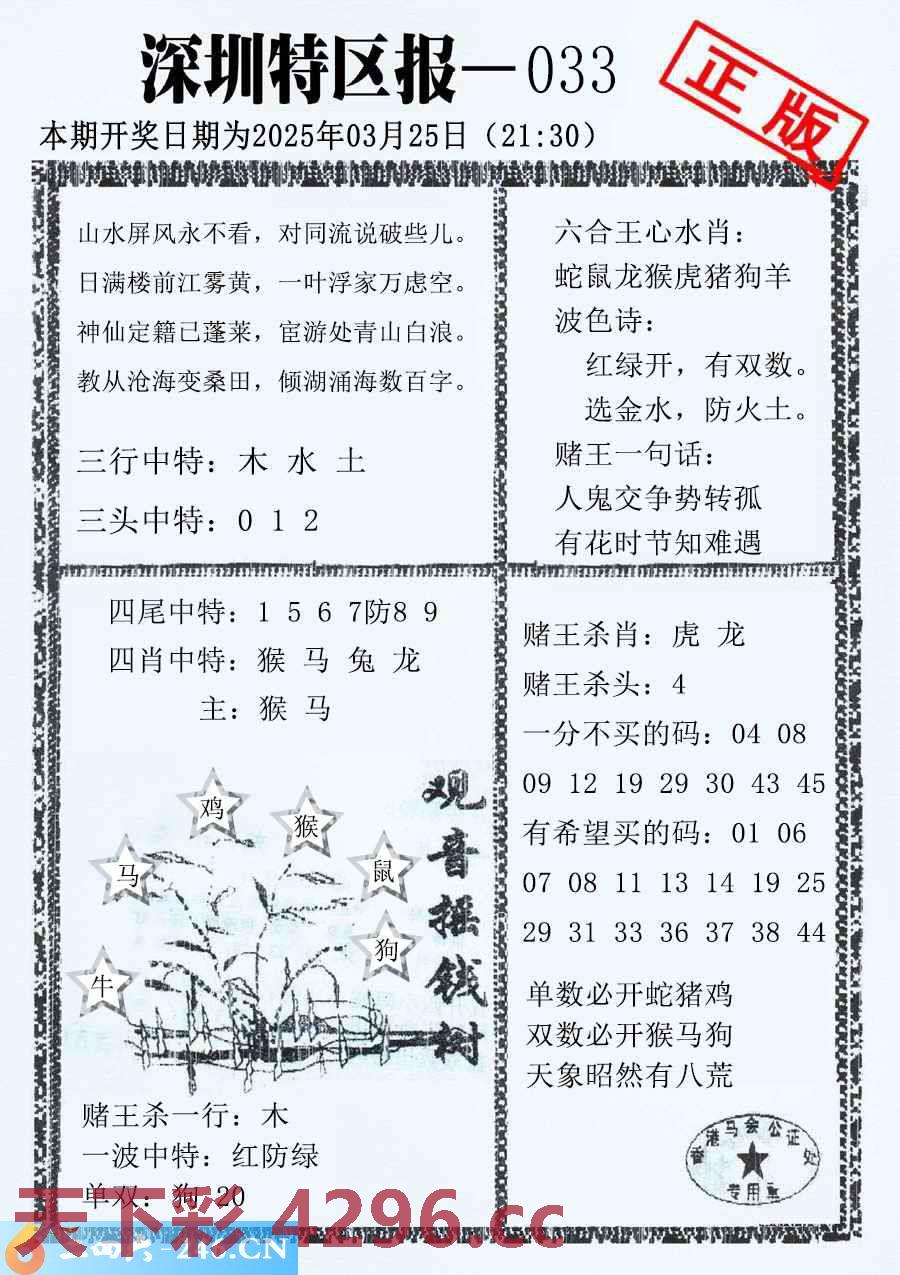 深圳特区报—033
正版
本期开奖日期为2025年03月25日（21:30）
山水屏风永不看，对同流说破些儿。
日满楼前江雾黄，一叶浮家万虑空。
神仙定籍已蓬莱，宦游处青山白浪。
教从沧海变桑田，倾湖涌海数百字。
三行中特：木 水 土
三头中特：0 1 2
六合王心水肖：
蛇鼠龙猴虎猪狗羊
波色诗：
红绿开，有双数。
选金水，防火土。
赌王一句话：
人鬼交争势转孤
有花时节知难遇
四尾中特：1 5 6 7防8 9
四肖中特：猴 马 兔 龙
主：猴 马
鸡
猴
马
鼠
狗
牛
观音摇钱树
赌王杀一行：木
一波中特：红防绿
单双：狗 20
赌王杀肖：虎 龙
赌王杀头：4
一分不买的码：04 08
09 12 19 29 30 43 45
有希望买的码：01 06
07 08 11 13 14 19 25
29 31 33 36 37 38 44
单数必开蛇猪鸡
双数必开猴马狗
天象昭然有八荒
香港马会公证处
专用章
天下彩 4296.cc
-246.CN